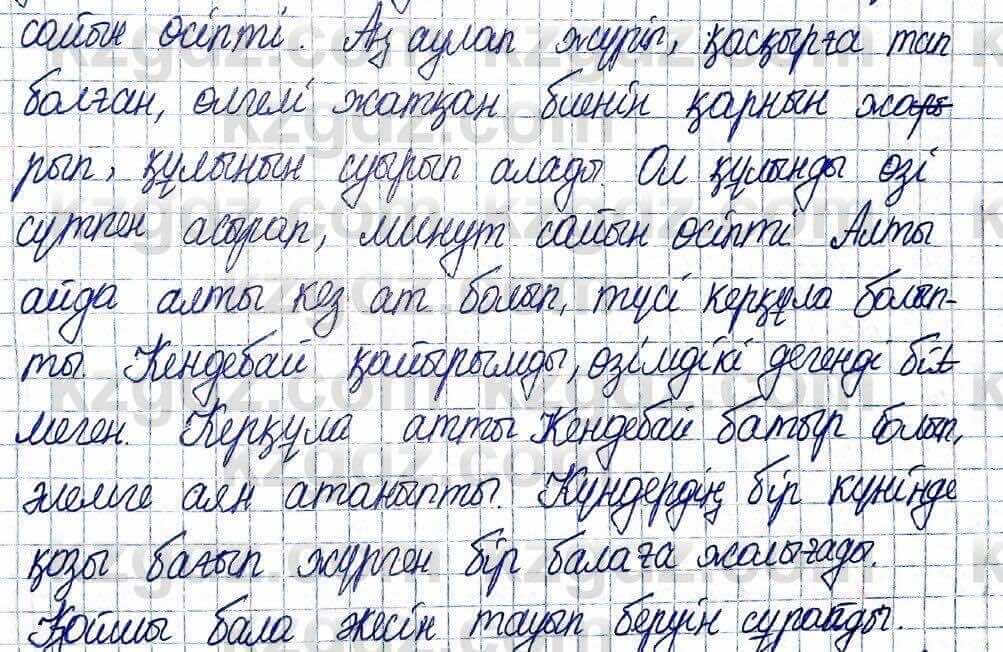 сайын өсіпті. Аң аулап жүріп, қасқырға тап
болған, өлгелі жатқан биенің қарнын жа
рып, құлынын суырып алады. Ол құлынды өзі
сүтпен асырап, минут сайын өсіпті Алты
айда алты кез ат болып, түсі керқұла болып-
ты. Кендебай қайырымды, өзімдікі дегенді біл
меген. Керқұла атты Кендебай батыр болып,
әлемге аян атаныпты. Күндердің бір күнінде
қозы бағып жүрген бір балаға жолығады.
Қойшы бала әкесін тауып беруін сұрайды.